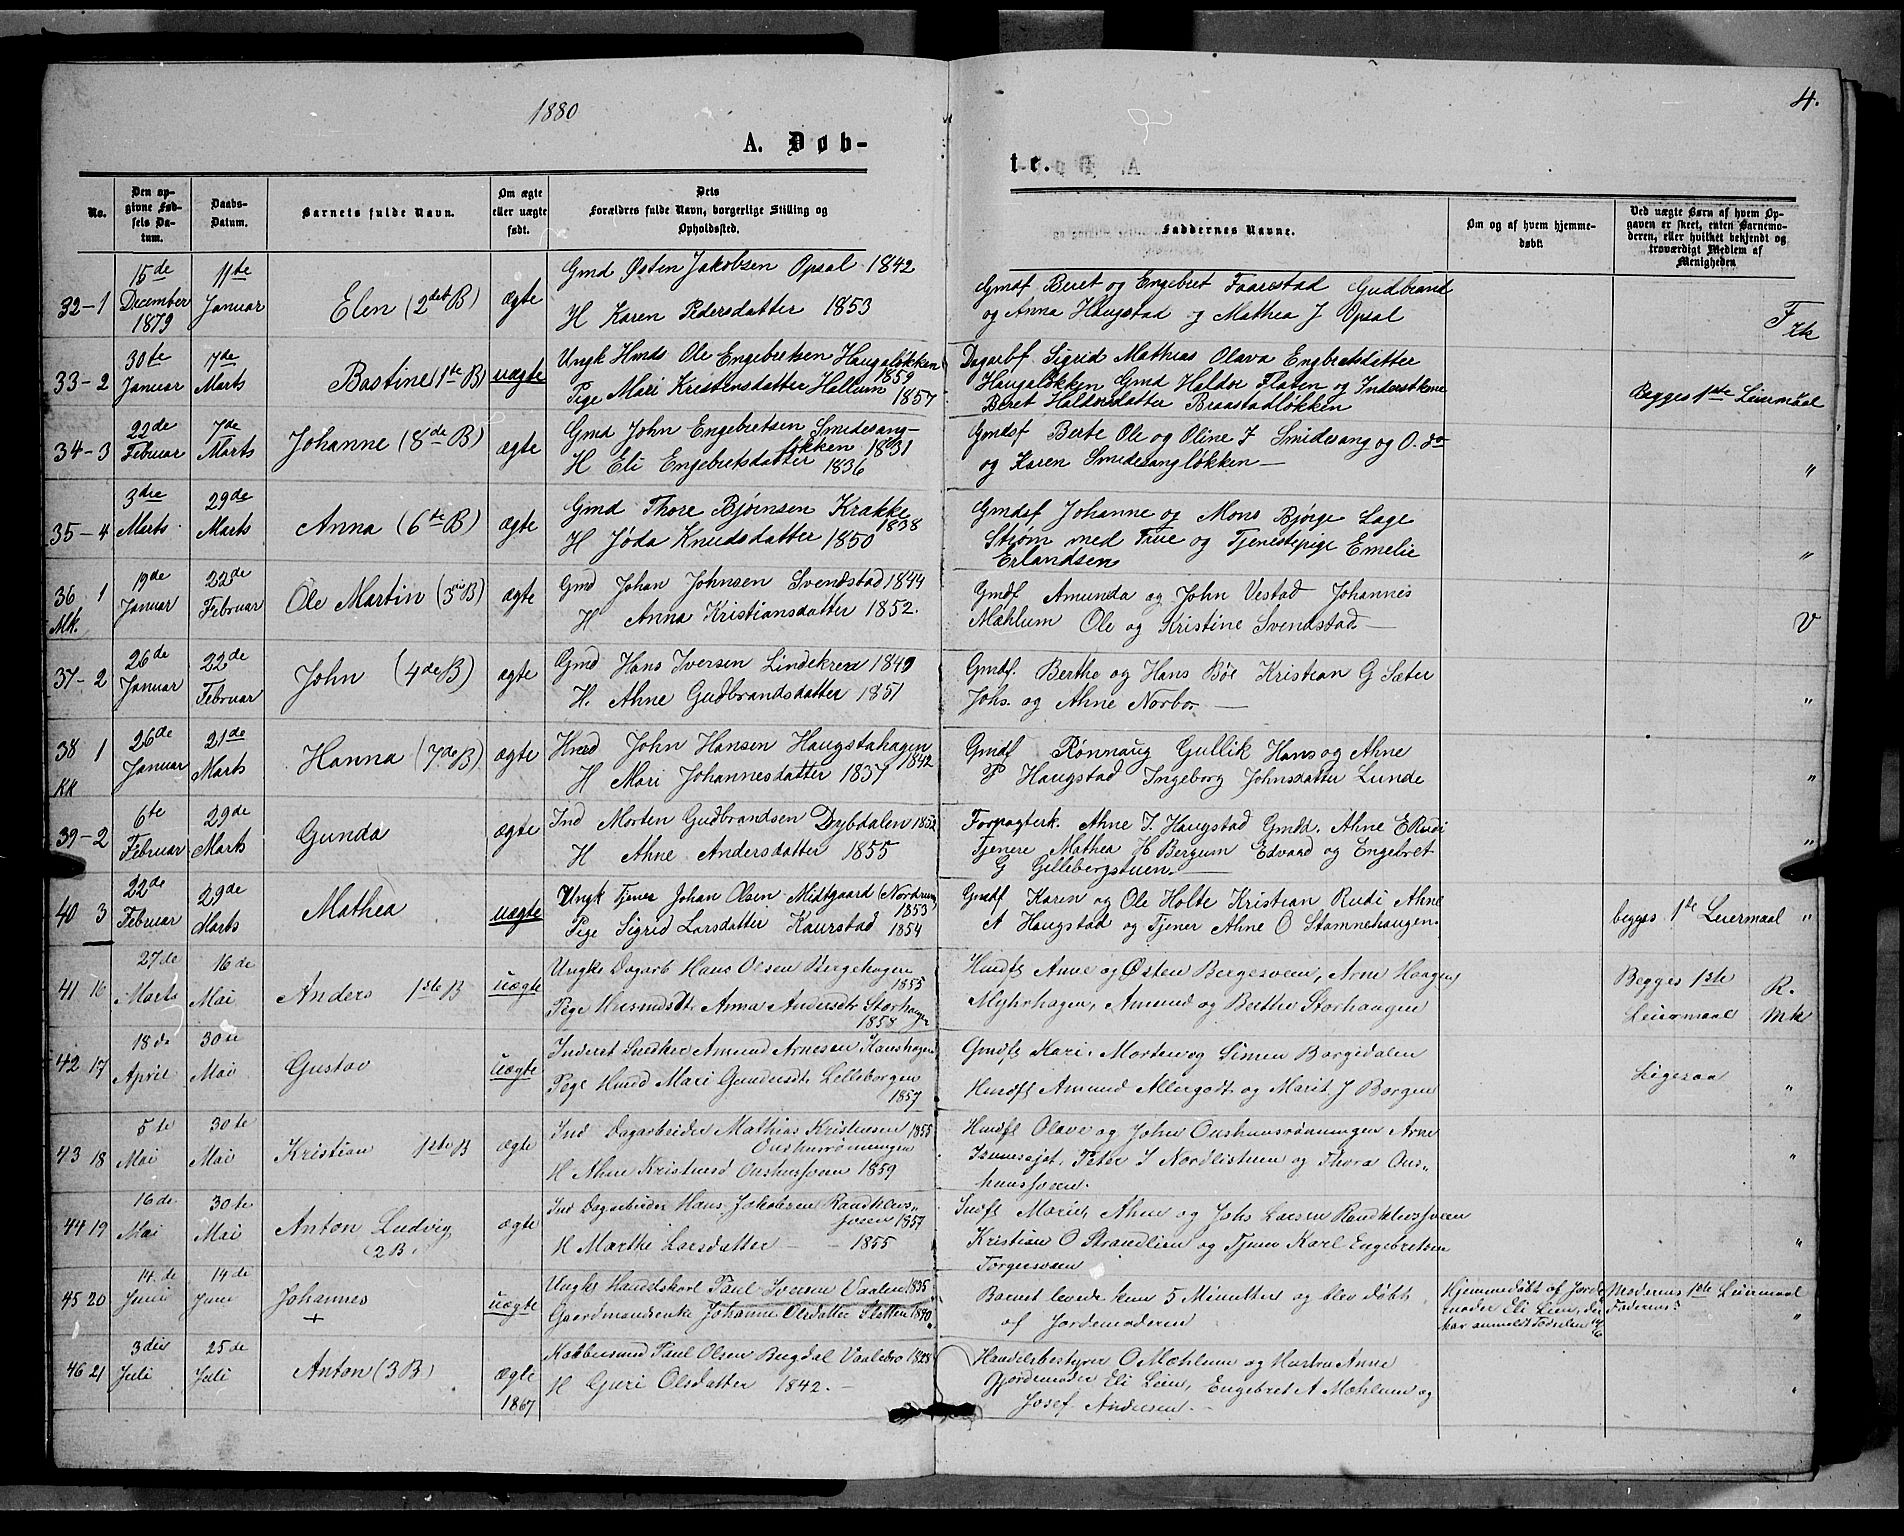 1880
4.
A. Døb-
te.
No.
Den op-
givne Fød-
sels Da-
tum.
Daabs-
Datum.
Barnets fulde Navn.
Om ægte
eller uægte
født.
Dets
Forældres fulde Navn, borgerlige Stilling og
Opholdssted.
Faddernes Navne.
Om og af hvem hjemme-
døbt.
Ved uægte Børn af hvem Op-
gaven er skeet, enten Barnemo-
deren, eller hvilket bekjendt og
troværdigt Medlem af
Menigheden
32-1
15de
December
1879
11te
Januar
Elen (2det B)
ægte
Gmd Østen Jakobsen Opsal 1842
H Karen Pedersdatter 1853
Gmdf Beret og Engebret Faarestad Gudbrand
og Anna Haugstad og Mathea J Opsal
33-2
30te
Januar
7de
Marts
Bastine (1ste B)
uægte
Ungk Hmds Ole Engebretsen Haugaløkken
1859
Pige Mari Kristensdatter Hallum 1857
Dagarbf. Sigrid Mathias Olava Engbretsdatter
Haugaløkken Gmd Haldor Flaten og Inderstkone
Beret Haldorsdatter Braastadløkken
Begges 1ste Leiermaal
34-3
22de
Februar
7de
Marts
Johanne (8de B)
ægte
Gmd John Engebretsen Smidesang-
løkken 1831
H Eli Engebretsdatter 1836
Gmdsf Berte Ole og Oline J Smidesang og O. do
og Karen Smidesangløkken
"
35-4
3die
Marts
29de
Marts
Anna (6te B)
ægte
Gmd Thore Bjørnsen Krakke
1838
H Jøda Knudsdatter 1850
Gmdsf Johanne og Mons Bjørge Lage
Strøm med Frue og Tjenestepige Emelie
Erlandsen
"
36 1
Mk.
19de
Januar
22de
Februar
Ole Martin (3die B)
ægte
Gmd Johan Johnsen Svendstad 1844
H Anna Kristiansdatter 1852.
Gmdf Amunda og John Vestad Johannes
Mæhlum Ole og Kristine Svendstad
V
37-2
26de
Januar
22de
Februar
John (4de B)
ægte
Gmd Hans Iversen Lindekren 1849
H. Ahne Gudbrandsdatter 1851
Gmdf. Berthe og Hans Bøe Kristian G Sæter
Johs. og Ahne Norbo
"
38 1
KK
26de
Januar
21de
Marts
Hanna (7de B)
ægte
Hmd John Hansen Haugstahagen
1842
H Mari Johannesdatter 1837
Gmdf Rønnaug Gullik Hans og Ahne
P Haugstad Ingeborg Johnsdatter Lunde
"
39-2
6te
Februar
29de
Marts
Gunda
ægte
Ind Morten Gudbrandsen Dybdalen 1852
H Ahne Andersdatter 1855
Forpagterk. Ahne I. Haugstad Gmd. Ahne E Rudi
Tjenere Mathea H Bergum Edvard og Engebret
G Gillebergstuen.
"
40 3
22de
Februar
29de
Marts
Mathea
uægte
Ungk Tjener Johan Olsen Midtgaard (Nordrum)
1853
Pige Sigrid Larsdatter Kaurstad 1854
Gmdf Karen og Ole Holte Kristian Rudi Ahne
A Haugstad og Tjener Ahne O Stamnehaugen
begges 1ste Leiermaal "
41 16
27de
Marts
16de
Mai
Anders 1ste B
uægte
Ungk Dagarb Hans Olsen Bergehagen
1855
Pige Husmdsdt Anna Andersdtr Storhaugen
1858
Hmdfk Anne og Østen Bergesveen, Arne Haagens
Myhrhagen, Amund og Berthe Storhaugen
Begges 1ste
Leiermaal
R.
Mk
42 17
18de
April
30te
Mai
Gustav
uægte
Inderst Snedker Amund Arnesen
Pige Hmd Mari Gundersdt Lilleborgen
1857
Gmdfk Kari, Morten og Simen Borgedalen
Hmdfk Amund Allergodt og Marit J Borgen
Ligesaa
"
43 18
5te
Mai
30te
Mai
Kristian 1ste B
ægte
Ind Dagarbeider Mathias Kristensen 1855
H Ahne Kristensd 1859
Hmdfk Olave og John Arne
Peter I Nordlistuen og Thora
"
44 19
16de
Mai
30te
Mai
Anton Ludvig
(2 B)
ægte
Ind Dagarbeider Hans Jakobsen
1857
H Marthe Larsdatter 1855
Marie, Ahne og Johs Larsen
Kristian O Strandlien og Tjener Karl Engebretsen
Torgersveen
"
45 20
14de
Juni
14de
Juni
Johannes
+
uægte
Ungk Handelskarl Paul Iversen Vaalen 1835
Gaardmandsenke Johanne Olsdatter Sletten 1840
Barnet levede kun 5 Minutter og blev døbt
af Jordemoderen
Hjemmedøbt af Jorde
moder Eli Lien, der
har anmeldt Fødselen
Moderens 1ste Leiermaal
Faderens?
"
46 21
3die
Juli
25de
Juli
Anton (3 B)
ægte
1867
Paul Olsen Bugdal Vaalebro 1828
H Guri Olsdatter 1842.
Handelsbestyrer O Mæhlum og Hustru Anne
Gjordemoder Eli Lien, Engebret A Mæhlum og
Josef Andersen.
"